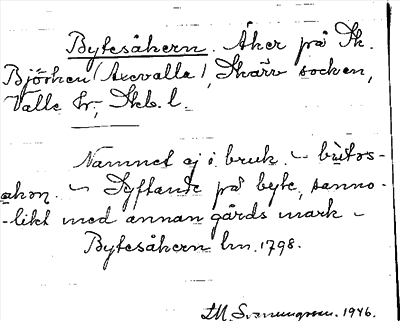 Bytesåkern. Åker på St.
Björken (Axevalla), Skärv socken,
Valle hr, Skb. l.
Namnet ej i bruk. – bùtəs-
-akən. – Syftande på byte, sanno-
-likt med annan gårds mark –
Bytesåkern lm. 1798.
1946.